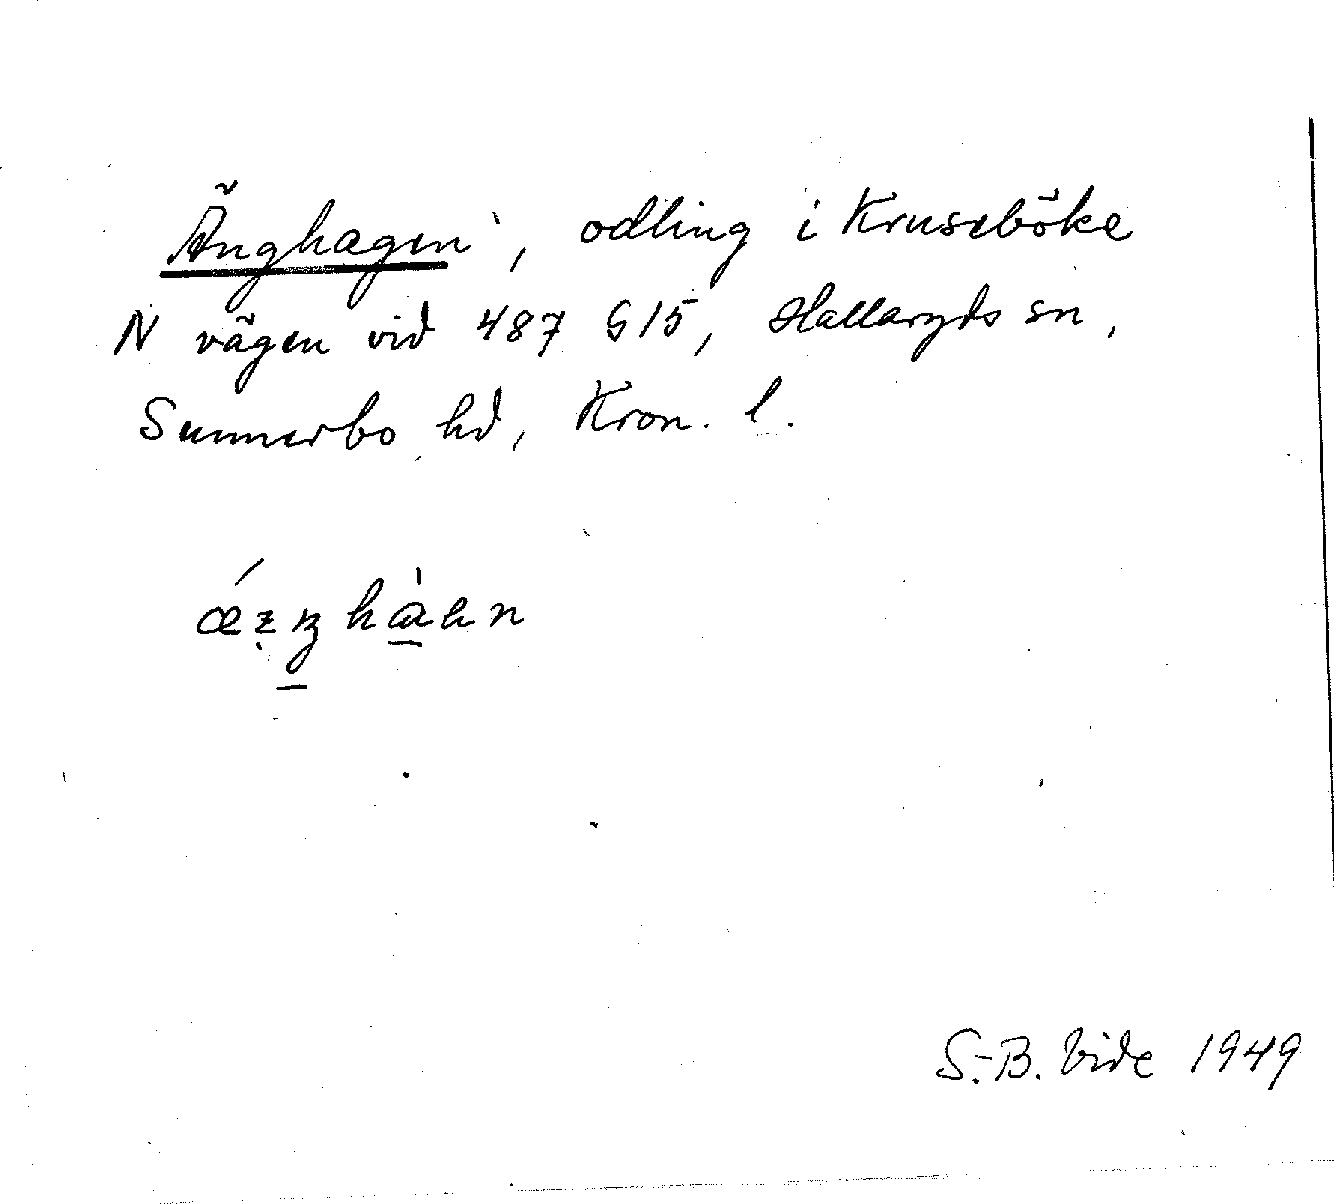 Änghagen, odling i Kruseböke
N vägen vid 487 G15, Hallaryds sn,
Sunnerbo hd, Kron. l.
S.-B. Vide 1949